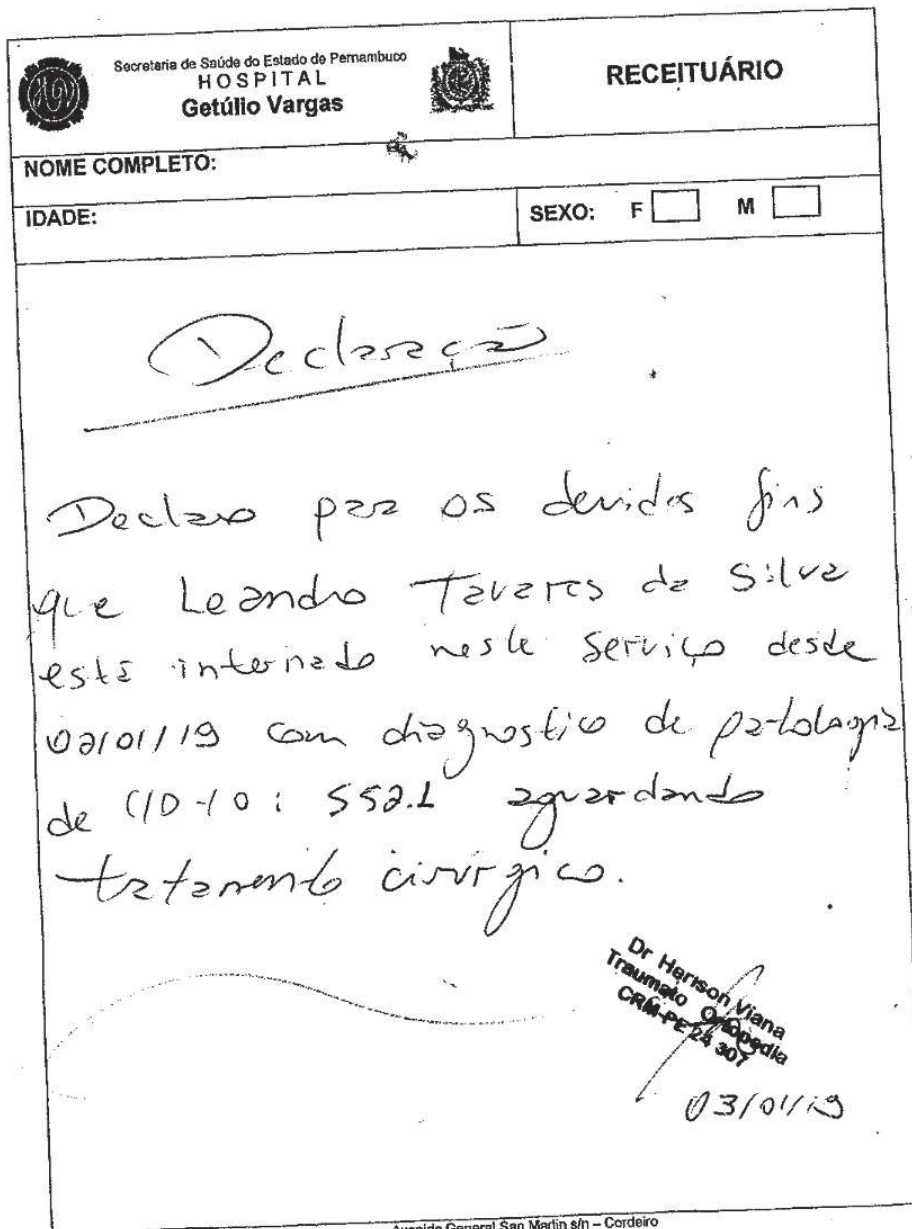 Secretaria de Saúde do Estado de Pernambuco
HOSPITAL
Getúlio Vargas
RECEITUÁRIO
NOME COMPLETO:
IDADE:
SEXO: F M
Declaração
Declaro para os devidos fins
que Leandro Tavares da Silva
está internado neste serviço desde
02/01/19 com diagnostico de patologia
de CID-10: S52.1 aguardando
tratamento cirúrgico.
Dr Herison Viana
Traumato Ortopedia
CRM-PE 24 307
03/01/19
Avenida General San Martin s/n – Cordeiro